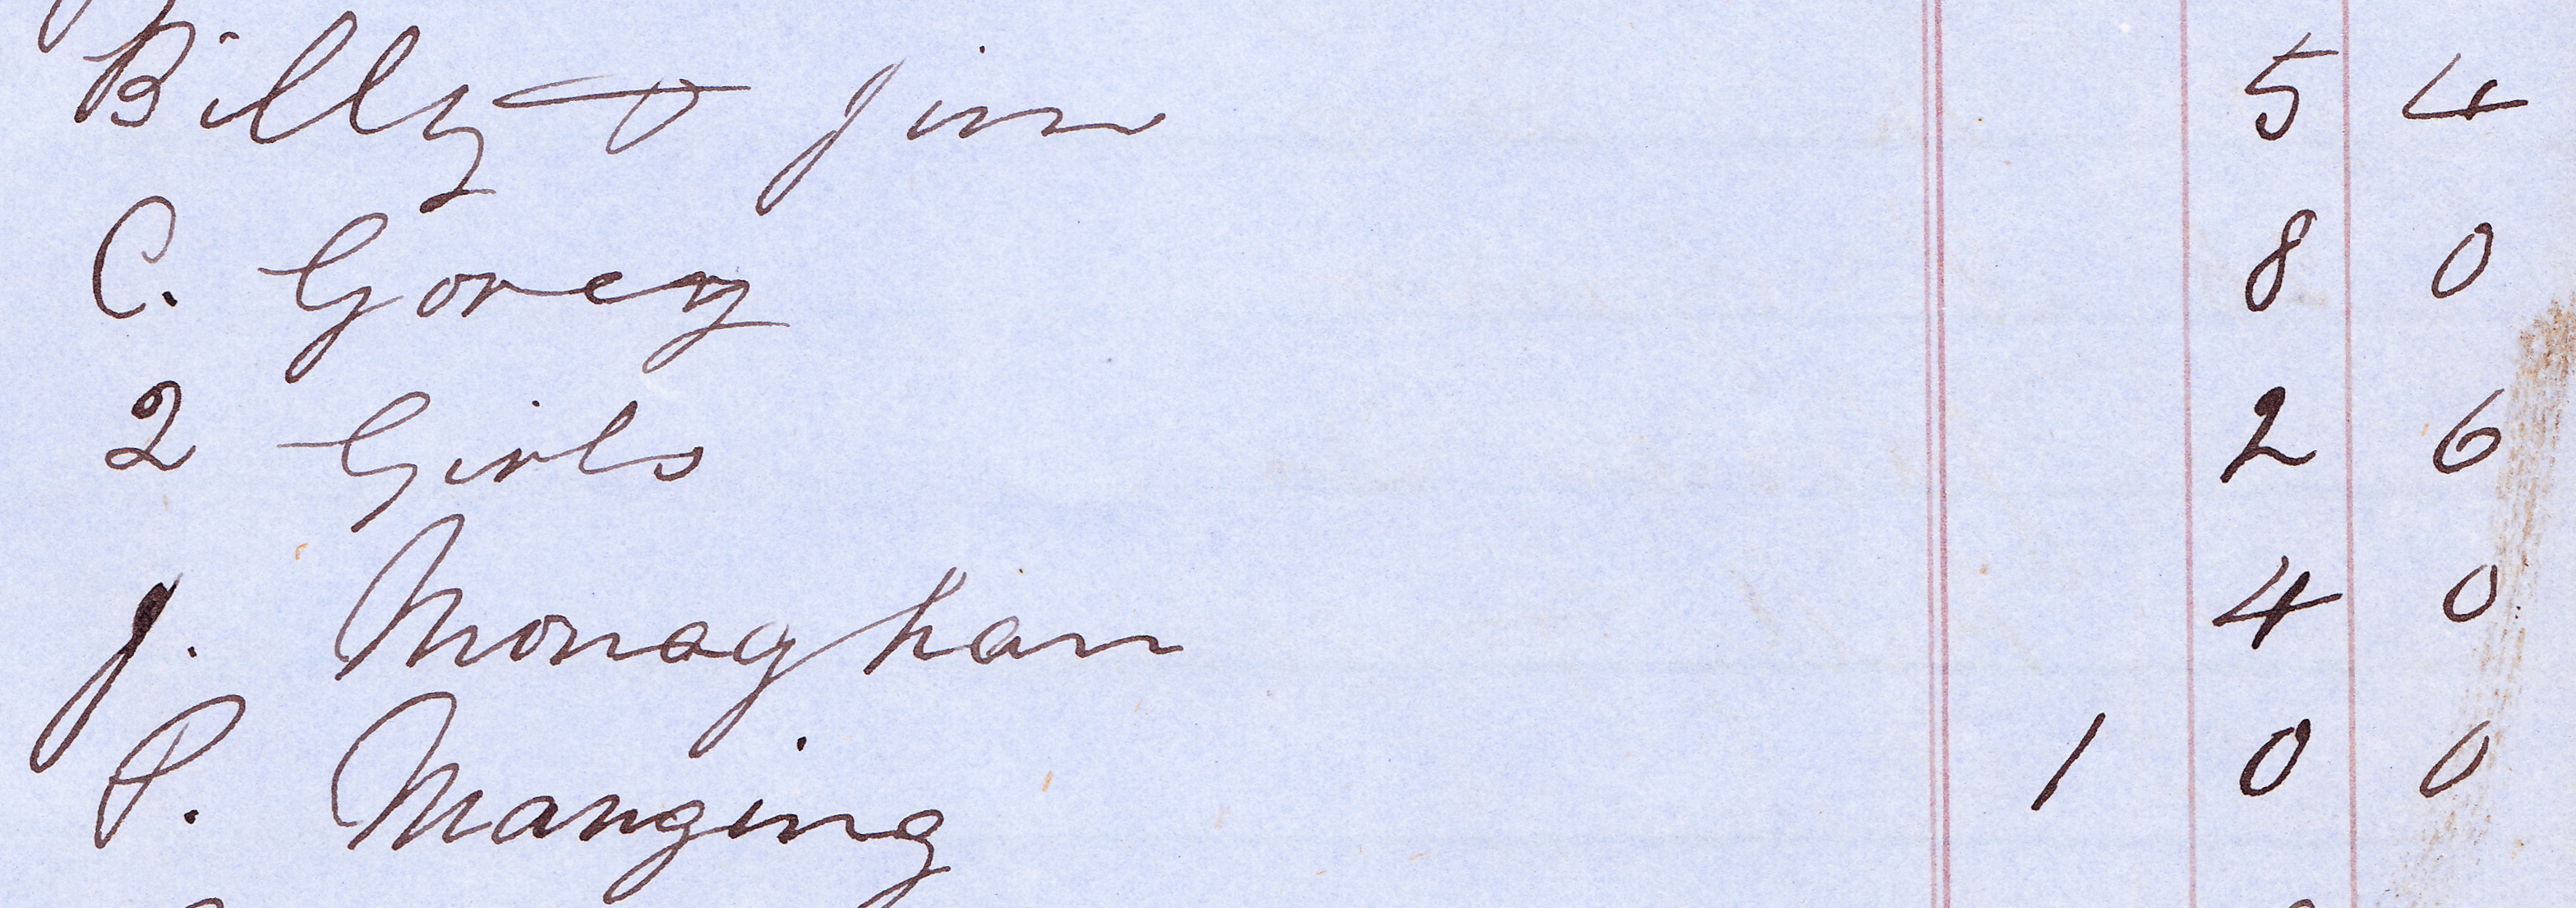 Billy & Jim 5 4
C. Gorey 8 0
2 Girls 2 6
J. Monaghan 4 0
P. Manging 1 0 0